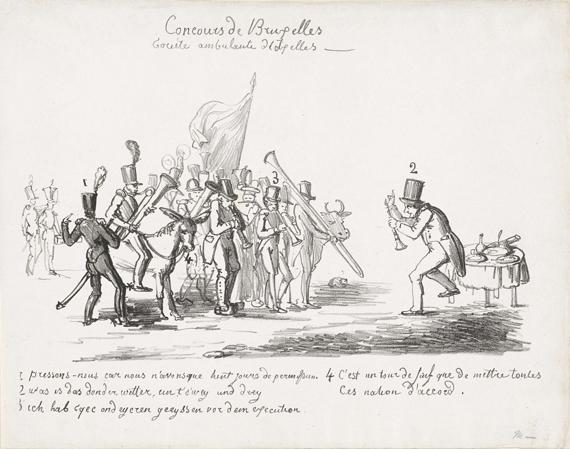 Concours de Bruxelles
Société ambulante d'Ixelles
1
2
3
4
1 pressons-nous car nous n'avons que huit jours de permission.
2 was is das donder wetter, un t'éwey und drey
3 ich hab eyer geeyssen vor dem execution.
4 C'est un tour de juif que de mettre toutes
Ces nation d'accord.